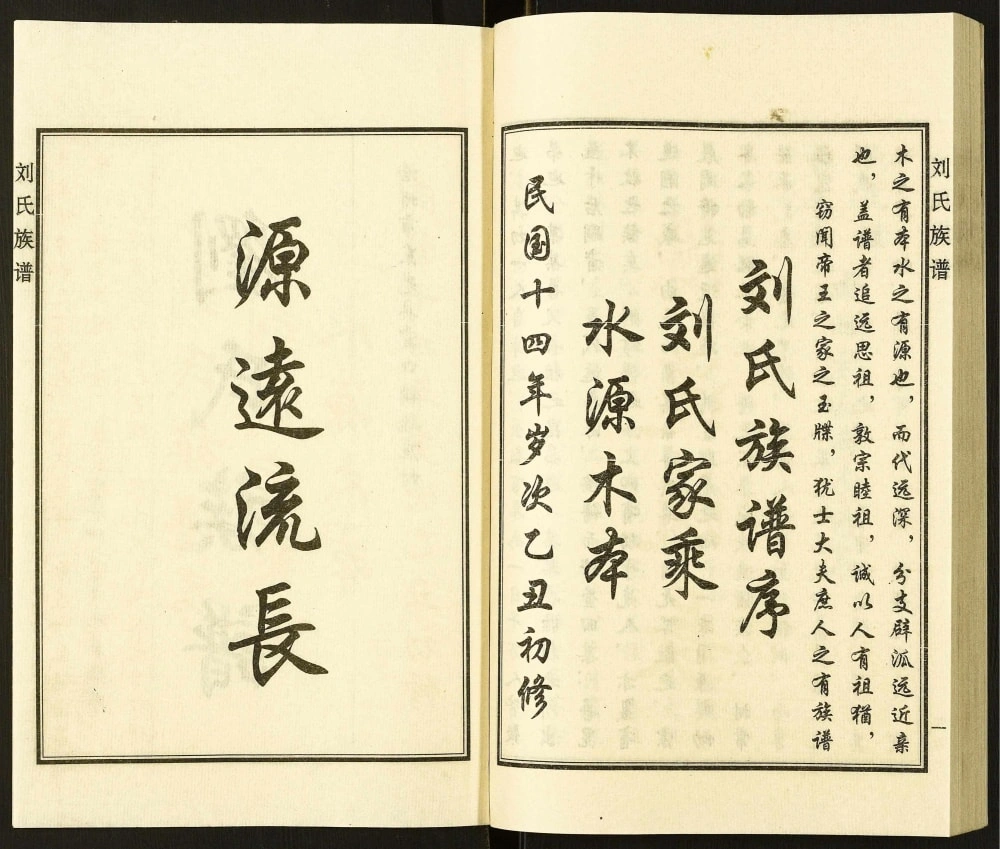 刘氏族谱
源遠流長
民国十四年岁次乙丑初修
水源木本
刘氏家乘
刘氏族谱序
窃闻帝王之家之玉牒，犹士大夫庶人之有族谱
也，盖谱者追远思祖，敦宗睦祖，诚以人有祖猶，
木之有本水之有源也，而代远深，分支辟泒远近亲
刘氏族谱
一